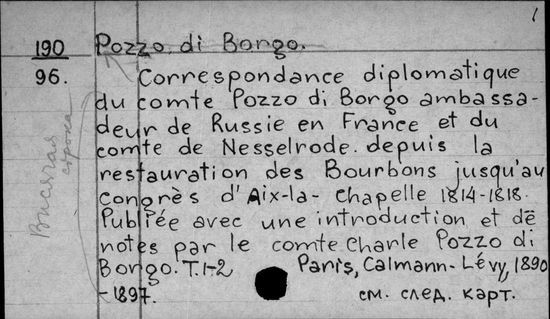 1
190
96.
Pozzo di Borgo.
Correspondance diplomatique
du comte Pozzo di Borgo ambassa-
deur de Russie en France et du
comte de Nesselrode. depuis la
restauration des Bourbons jusqu'au
Congrès d'Aix-la-Chapelle 1814-1818.
Publiée avec une introduction et de
notes par le comte Charle Pozzo di
Borgo. T.1-2 Paris, Calmann-Lévy, 1890
-1897.
см. след. карт.
строка